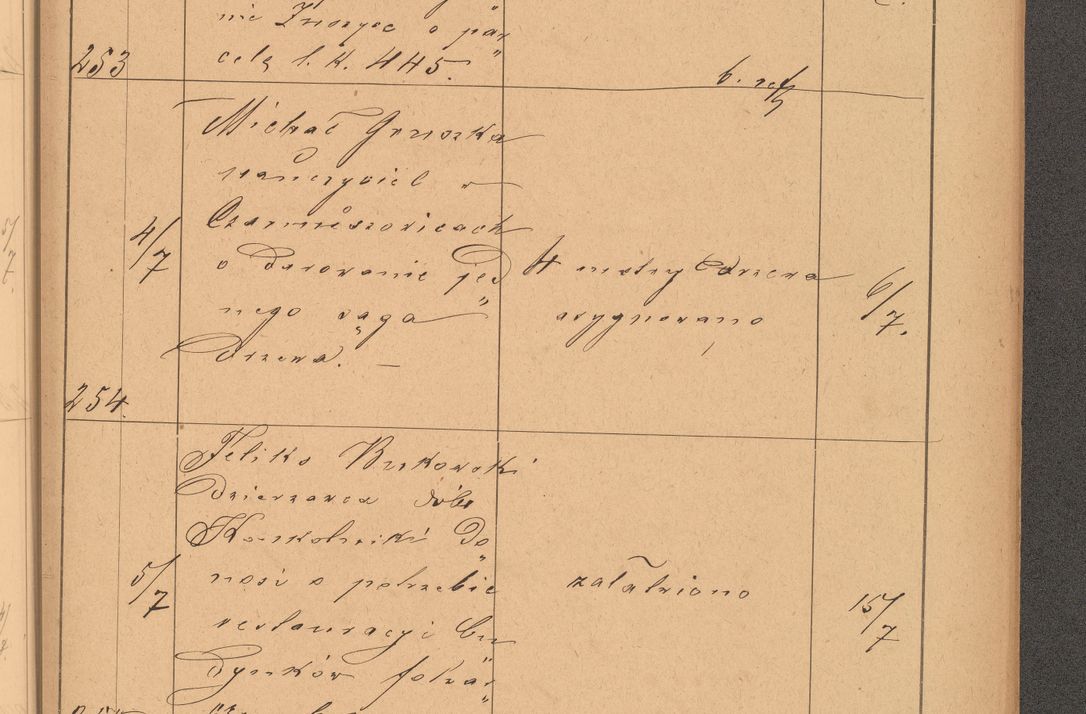 nie Znosyce o par„
celę l. k. 445.
253
Michał Gruszka
nauczyciel w
Czarnuszowicach
4/7
o darowanie jed„
4 metry drzewa
6/7.
nego sąga
asygnowano
drzewa. —
254.
Feliks Bukowski
dzierzawca dóbr
Konkolniki do„
5/7
nosi o potrzebie
załatwiono
15/7
restauracyi bu„
dynków folwar„